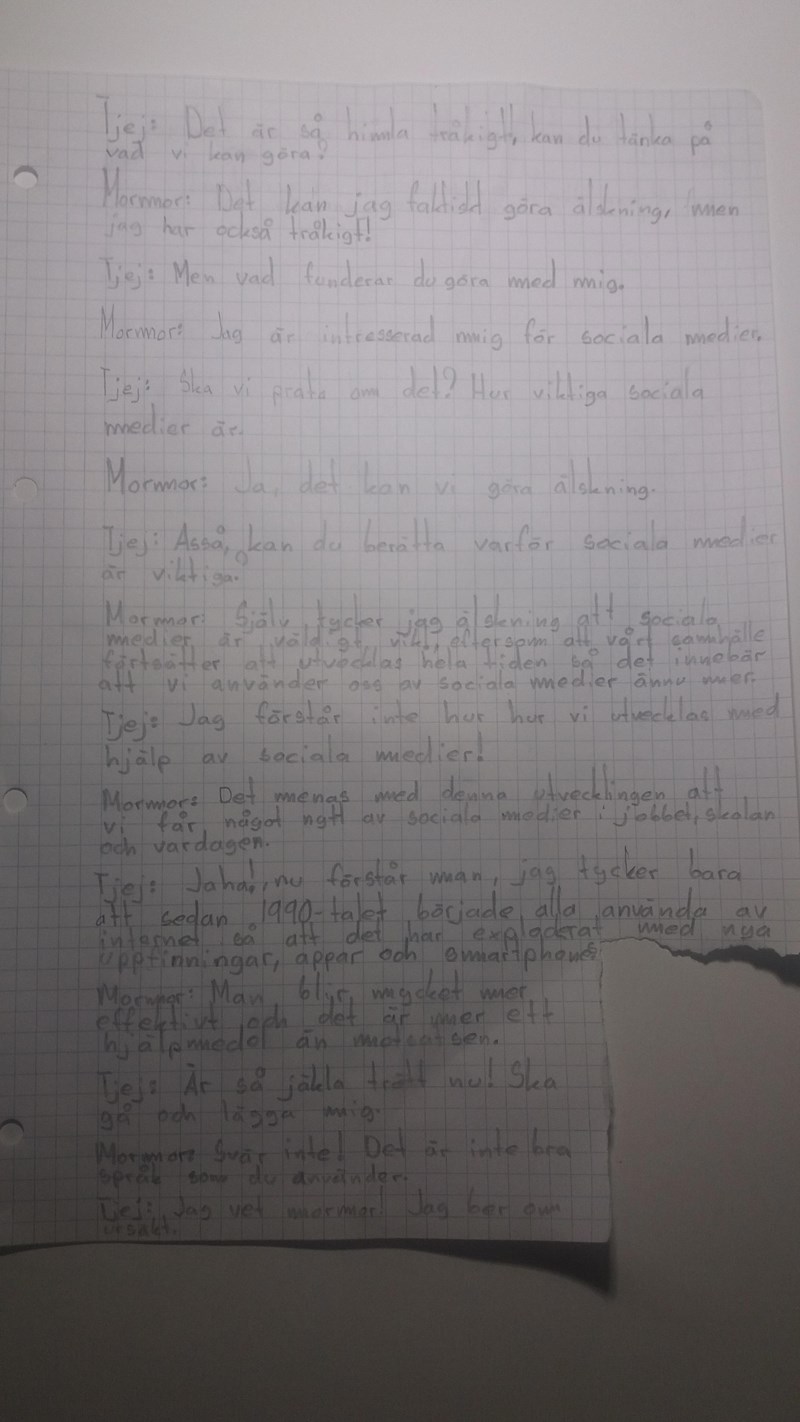 Tjej: Det är så himla tråkigt, kan du tänka på
vad vi kan göra?
Mormor: Det kan jag faktidd göra älskning, men
jag har också tråkigt!
Tjej: Men vad funderar du göra med mig.
Mormor: Jag är intresserad mig för sociala medier.
Tjej: Ska vi prata om det? Hur viktiga sociala
medier är.
Mormor: Ja, det kan vi göra älskning.
Tjej: Asså, kan du berätta varför sociala medier
är viktiga?
Mormor: Själv tycker jag älskning att sociala
medier är väldigt vikt, eftersom att vårt samhälle
fortsätter att utvecklas hela tiden så det innebär
att vi använder oss av sociala medier ännu mer.
Tjej: Jag förstår inte hur hur vi utvecklas med
hjälp av sociala medier!
Mormor: Det menas med denna utvecklingen att
vi får något nytt av sociala medier i jobbet, skolan
och vardagen.
Tjej: Jaha!, nu förstår man, jag tycker bara
att sedan 1990-talet började alla använda av
internet så att det har exploderat med nya
uppfinningar, appar och smartphones
Mormor: Man blir mycket mer
effektivt och det är mer ett
hjälpmedel än motsatsen.
Tjej: Är så jäkla trött nu! Ska
gå och lägga mig.
Mormor: Svär inte! Det är inte bra
språk som du använder.
Tjej: Jag vet mormor! Jag ber om
ursäkt.